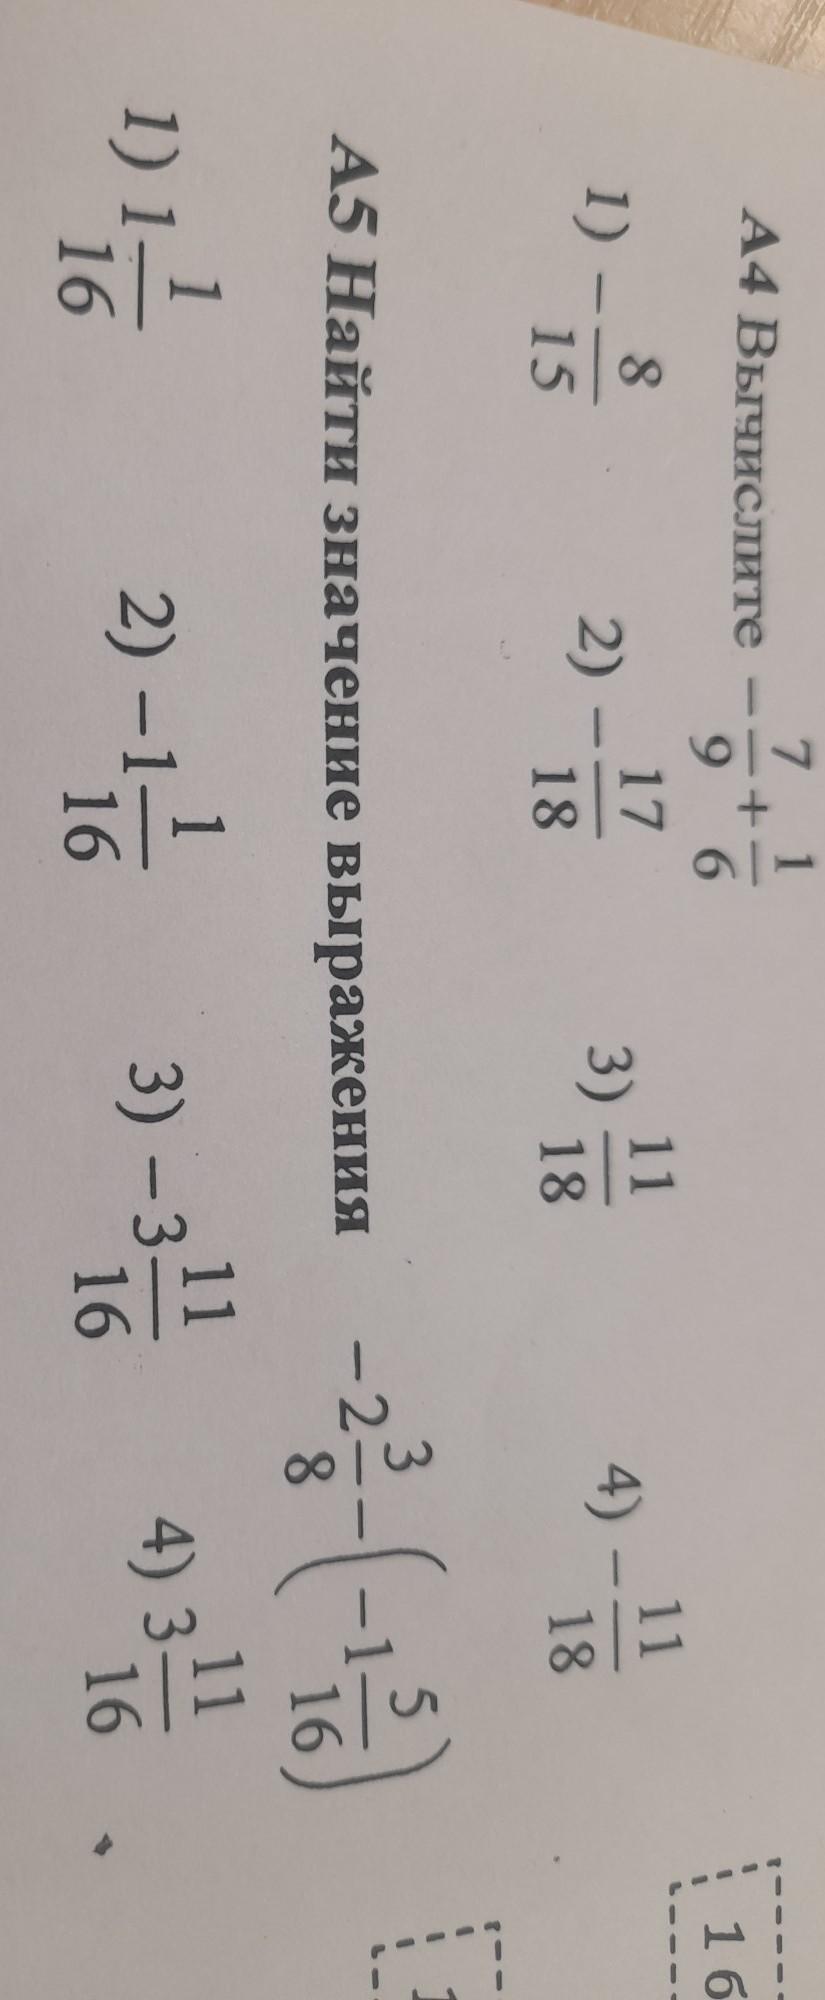 А4 Вычислите −7/9 + 1/6
1) −8/15 2) −17/18 3) 11/18 4) −11/18
1 б
А5 Найти значение выражения −2 3/8 − (−1 5/16)
1) 1 1/16 2) −1 1/16 3) −3 11/16 4) 3 11/16